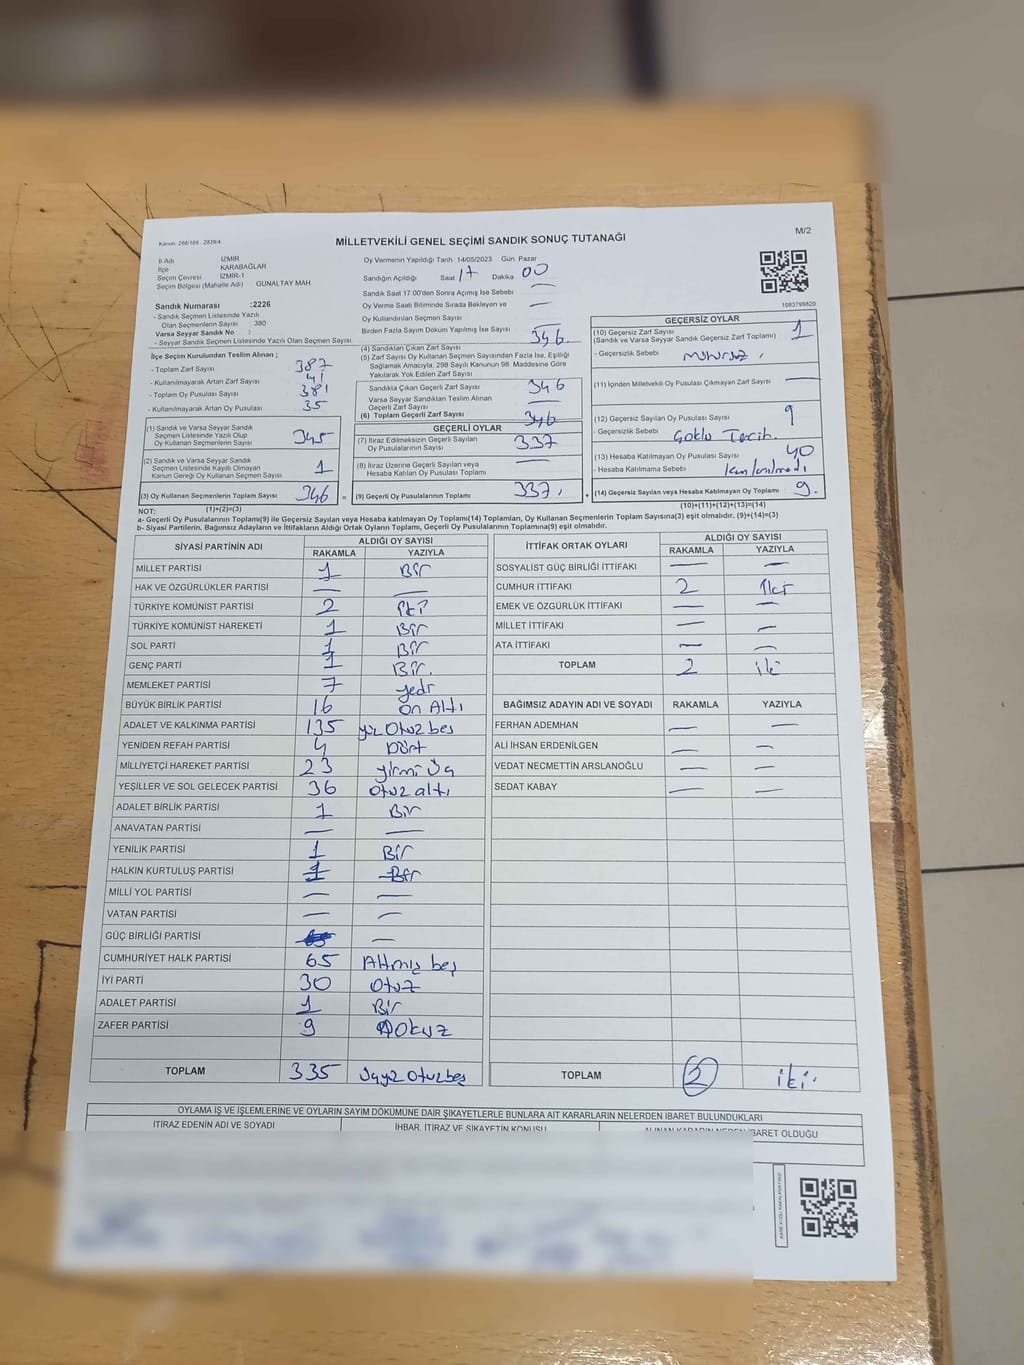 Kanun: 298/105 , 2839/4
M/2
MİLLETVEKİLİ GENEL SEÇİMİ SANDIK SONUÇ TUTANAĞI
İl Adı İZMİR
İlçe KARABAĞLAR
Seçim Çevresi İZMİR-1
Seçim Bölgesi (Mahalle Adı) GÜNALTAY MAH
Sandık Numarası :2226
- Sandık Seçmen Listesinde Yazılı
Olan Seçmenlerin Sayısı : 380
Varsa Seyyar Sandık No :
- Seyyar Sandık Seçmen Listesinde Yazılı Olan Seçmen Sayısı
Oy Vermenin Yapıldığı Tarih 14/05/2023 Gün Pazar
Sandığın Açıldığı Saat 17 Dakika 00
Sandık Saat 17:00'den Sonra Açımış İse Sebebi —
Oy Verme Saati Bitiminde Sırada Bekleyen ve —
Oy Kullandırılan Seçmen Sayısı
Birden Fazla Sayım Döküm Yapılmış İse Sayısı —
1083799820
İlçe Seçim Kurulundan Teslim Alınan ;
- Toplam Zarf Sayısı 387
- Kullanılmayarak Artan Zarf Sayısı 41
- Toplam Oy Pusulası Sayısı 381
- Kullanılmayarak Artan Oy Pusulası 35
(1) Sandık ve Varsa Seyyar Sandık
Seçmen Listesinde Yazılı Olup
Oy Kullanan Seçmenlerin Sayısı 345
(2) Sandık ve Varsa Seyyar Sandık
Seçmen Listesinde Kayıtlı Olmayan
Kanun Gereği Oy Kullanan Seçmen Sayısı 1
(3) Oy Kullanan Seçmenlerin Toplam Sayısı 346 =
(1)+(2)=(3)
(4) Sandıktan Çıkan Zarf Sayısı 346
(5) Zarf Sayısı Oy Kullanan Seçmen Sayısından Fazla İse, Eşitliği
Sağlamak Amacıyla, 298 Sayılı Kanunun 98. Maddesine Göre
Yakılarak Yok Edilen Zarf Sayısı
Sandıkta Çıkan Geçerli Zarf Sayısı 346
Varsa Seyyar Sandıktan Teslim Alınan
Geçerli Zarf Sayısı —
(6) Toplam Geçerli Zarf Sayısı 346
GEÇERLİ OYLAR
(7) İtiraz Edilmeksizin Geçerli Sayılan
Oy Pusulalarının Sayısı 337
(8) İtiraz Üzerine Geçerli Sayılan veya
Hesaba Katılan Oy Pusulası Toplamı —
(9) Geçerli Oy Pusulalarının Toplamı 337 +
GEÇERSİZ OYLAR
(10) Geçersiz Zarf Sayısı 1
(Sandık ve Varsa Seyyar Sandık Geçersiz Zarf Toplamı)
- Geçersizlik Sebebi
(11) İçinden Milletvekili Oy Pusulası Çıkmayan Zarf Sayısı —
(12) Geçersiz Sayılan Oy Pusulası Sayısı 9
- Geçersizlik Sebebi Çoklu Tercih.
(13) Hesaba Katılmayan Oy Pusulası Sayısı 40
- Hesaba Katılmama Sebebi
(14) Geçersiz Sayılan veya Hesaba Katılmayan Oy Toplamı 9.
(10)+(11)+(12)+(13)=(14)
NOT:
a- Geçerli Oy Pusulalarının Toplamı(9) ile Geçersiz Sayılan veya Hesaba katılmayan Oy Toplam(14) Toplamları, Oy Kullanan Seçmenlerin Toplam Sayısına(3) eşit olmalıdır. (9)+(14)=(3)
b- Siyasi Partilerin, Bağımsız Adayların ve İttifakların Aldığı Ortak Oyların Toplamı, Geçerli Oy Pusulalarının Toplamına(9) eşit olmalıdır.
SİYASİ PARTİNİN ADI ALDIĞI OY SAYISI
RAKAMLA YAZIYLA
MİLLET PARTİSİ 1 Bir
HAK VE ÖZGÜRLÜKLER PARTİSİ — —
TÜRKİYE KOMÜNİST PARTİSİ 2 iki
TÜRKİYE KOMÜNİST HAREKETİ 1 Bir
SOL PARTİ 1 Bir
GENÇ PARTİ 1 Bir.
MEMLEKET PARTİSİ 7 yedi
BÜYÜK BİRLİK PARTİSİ 16 on Altı
ADALET VE KALKINMA PARTİSİ 135 yüz Otuz beş
YENİDEN REFAH PARTİSİ 4 Dört
MİLLİYETÇİ HAREKET PARTİSİ 23 yirmi üç
YEŞİLLER VE SOL GELECEK PARTİSİ 36 otuz altı
ADALET BİRLİK PARTİSİ 1 Bir
ANAVATAN PARTİSİ — —
YENİLİK PARTİSİ 1 Bir
HALKIN KURTULUŞ PARTİSİ 1 Bir
MİLLİ YOL PARTİSİ — —
VATAN PARTİSİ — —
GÜÇ BİRLİĞİ PARTİSİ —
CUMHURİYET HALK PARTİSİ 65 Altmış beş
İYİ PARTİ 30 Otuz
ADALET PARTİSİ 1 Bir
ZAFER PARTİSİ 9 Dokuz
TOPLAM 335 üçyüz otuzbeş
İTTİFAK ORTAK OYLARI ALDIĞI OY SAYISI
RAKAMLA YAZIYLA
SOSYALİST GÜÇ BİRLİĞİ İTTİFAKI — —
CUMHUR İTTİFAKI 2 İki
EMEK VE ÖZGÜRLÜK İTTİFAKI — —
MİLLET İTTİFAKI — —
ATA İTTİFAKI — —
TOPLAM 2 iki
BAĞIMSIZ ADAYIN ADI VE SOYADI RAKAMLA YAZIYLA
FERHAN ADEMHAN — —
ALİ İHSAN ERDENİLGEN — —
VEDAT NECMETTİN ARSLANOĞLU — —
SEDAT KABAY — —
TOPLAM 2 iki..
OYLAMA İŞ VE İŞLEMLERİNE VE OYLARIN SAYIM DÖKÜMÜNE DAİR ŞİKAYETLERLE BUNLARA AİT KARARLARIN NELERDEN İBARET BULUNDUKLARI
İTİRAZ EDENİN ADI VE SOYADI
İHBAR, İTİRAZ VE ŞİKAYETİN KONUSU
ALINAN KARARIN NEDEN İBARET OLDUĞU